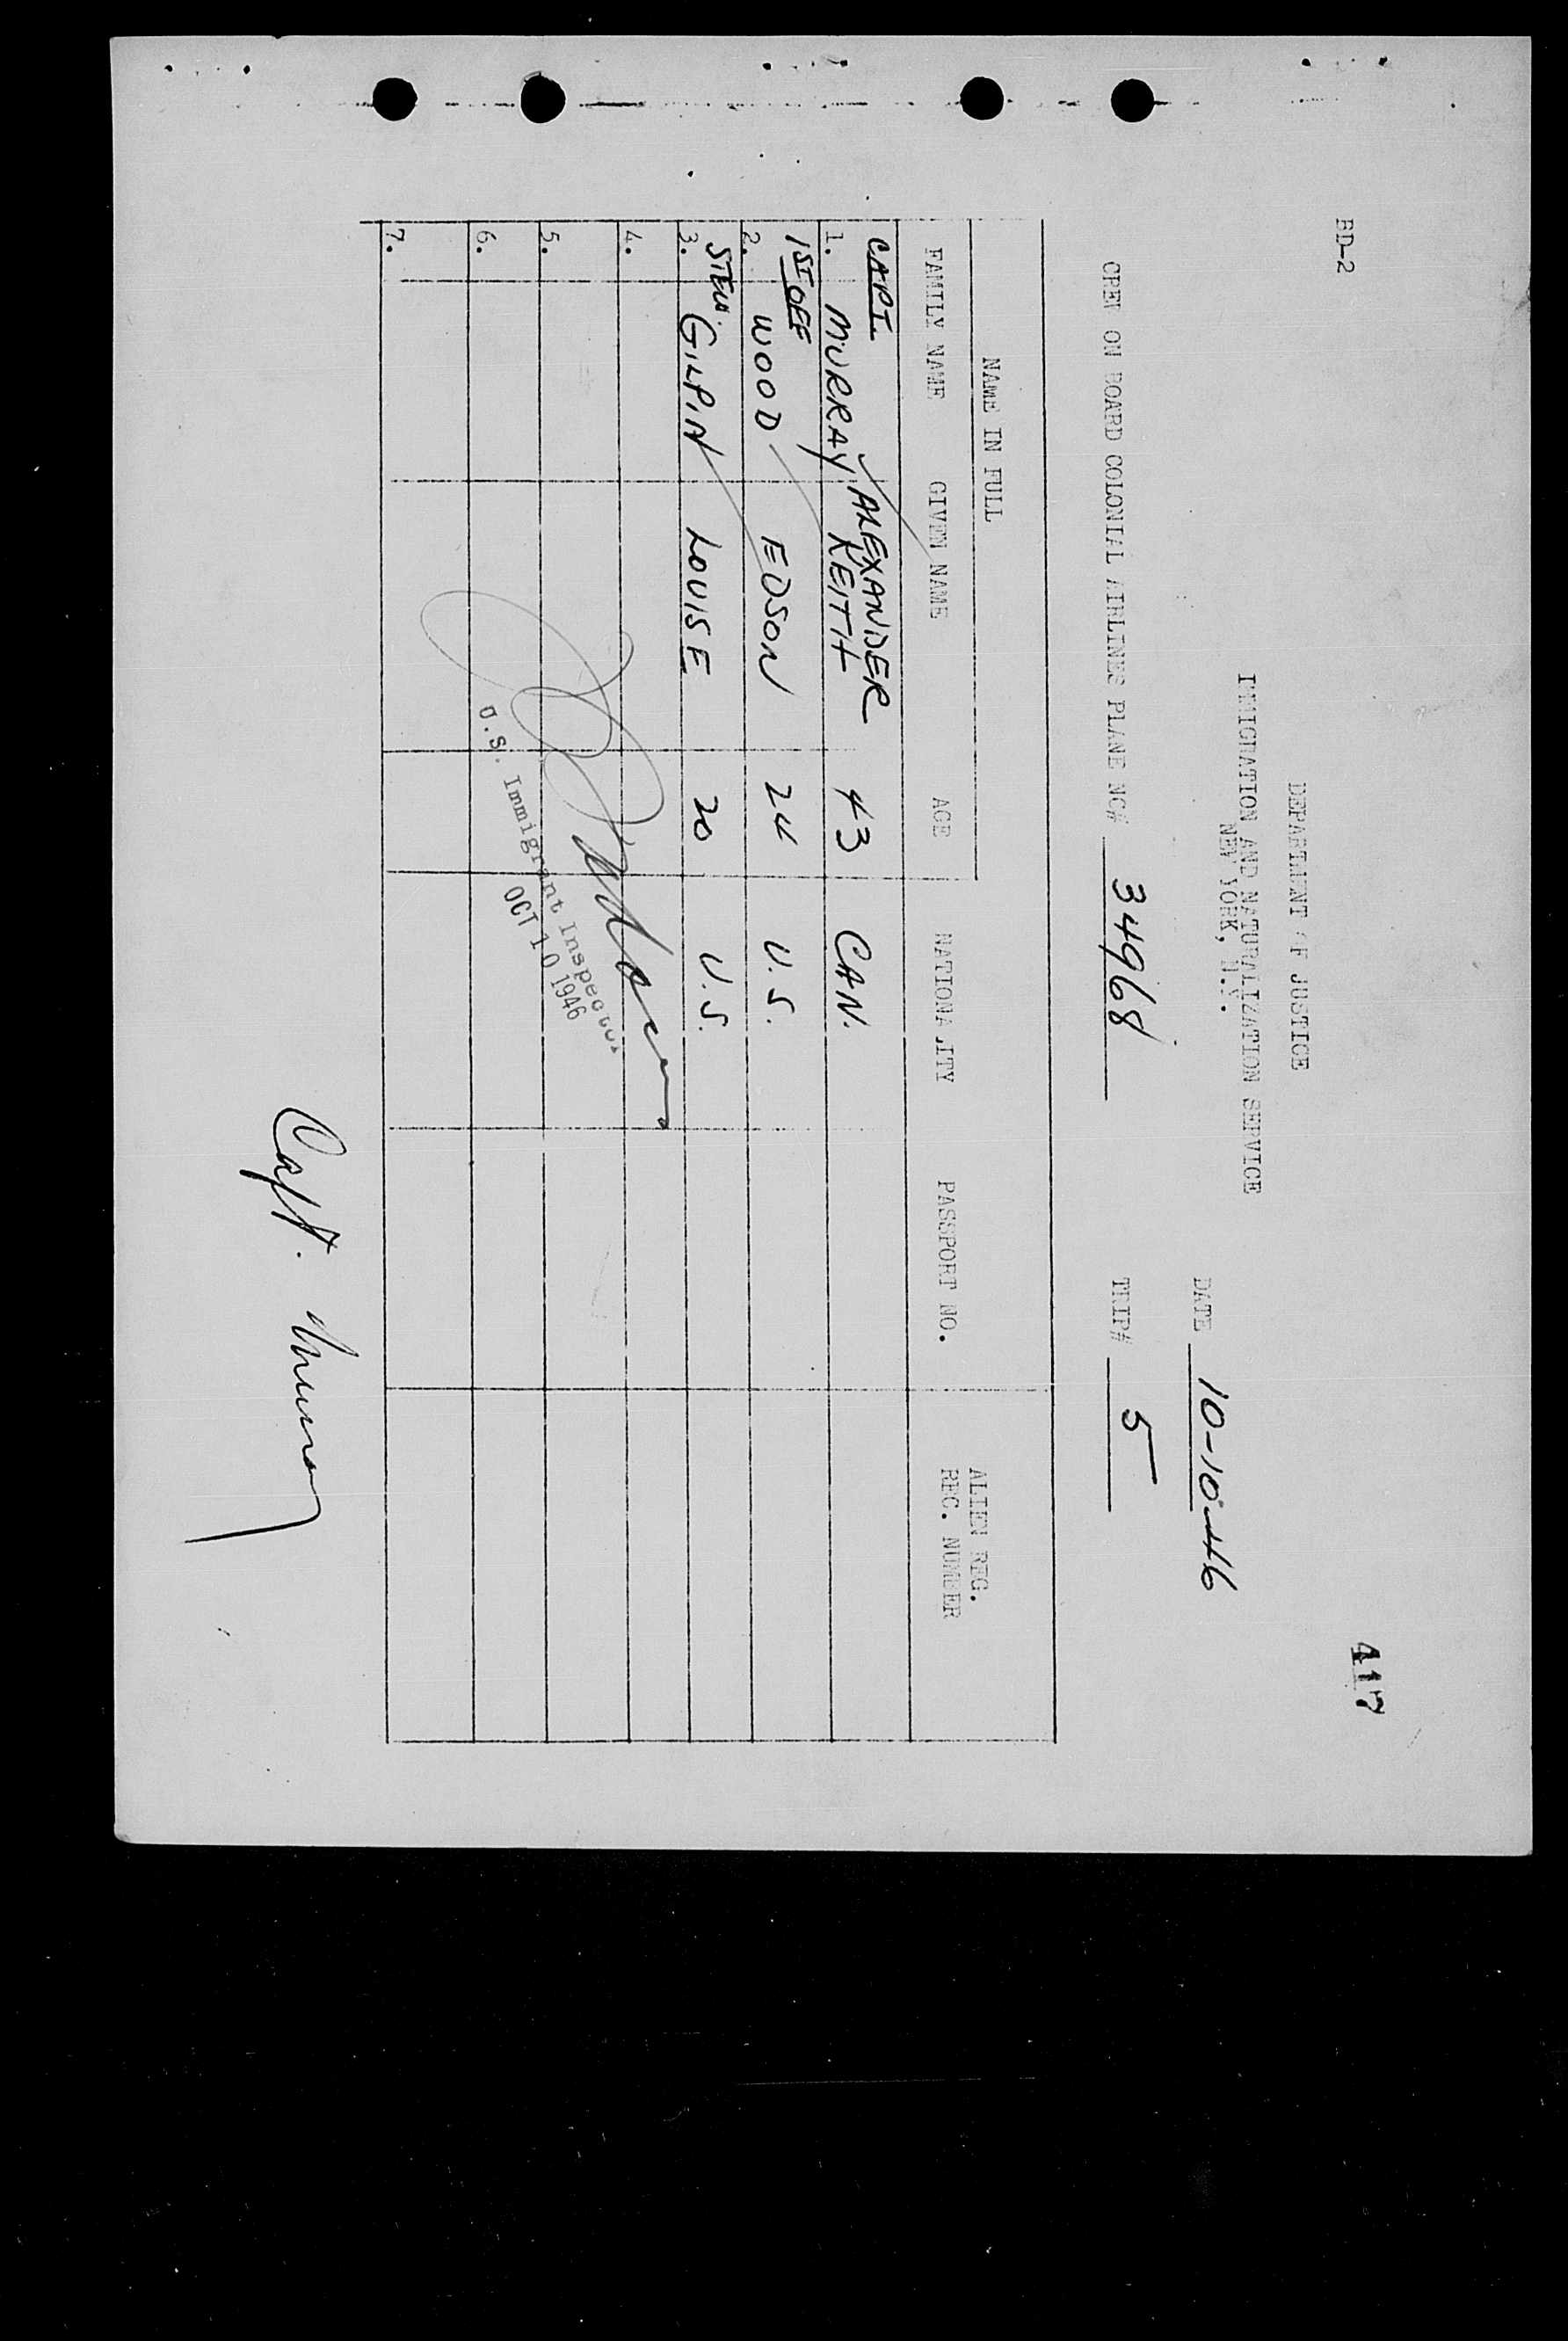 ED-2
417
DEPARTMENT OF JUSTICE
IMMIGRATION AND NATURALIZATION SERVICE
NEW YORK, N.Y.
DATE 10-10-46
CREW ON BOARD COLONIAL AIRLINES PLANE NC# 34968 TRIP# 5
NAME IN FULL
ALIEN REG.
FAMILY NAME GIVEN NAME AGE NATIONALITY PASSPORT NO. REG. NUMBER
CAPT. ALEXANDER
1. MURRAY KEITH 43 CAN.
1ST OFF
2. WOOD EDSON 24 U.S.
STEW.
3. GILPIN LOUISE 20 U.S.
4.
5.
6.
7.
U.S. Immigrant Inspector
OCT 10 1946
Capt. Murray